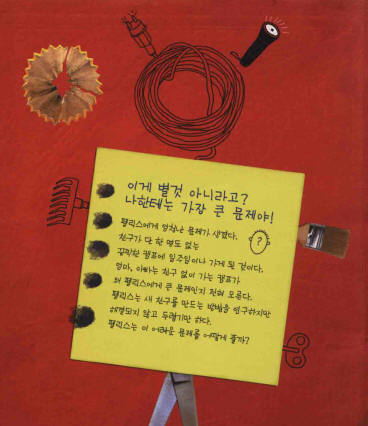 이게 별것 아니라고?
나한테는 가장 큰 문제야!
펠릭스에게 엄청난 문제가 생겼다.
친구가 단 한 명도 없는
끔찍한 캠프에 일주일이나 가게 된 것이다.
엄마, 아빠는 친구 없이 가는 캠프가
왜 펠릭스에게 큰 문제인지 전혀 모른다.
펠릭스는 새 친구를 만드는 방법을 연구하지만
해결되지 않고 두렵기만 하다.
펠릭스는 이 어려운 문제를 어떻게 풀까?
?